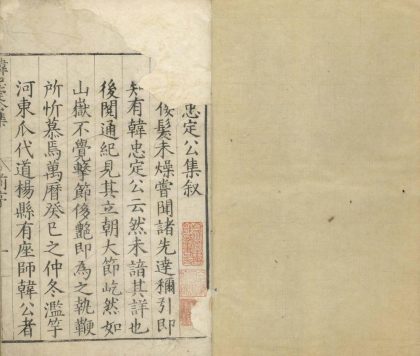 忠定公集叙
髮未燥嘗聞諸先達稱引即
知有韓忠定公云然未諳其詳也
後閱通紀見其立朝大節屹然如
山嶽不覺擊節後艷即為之執鞭
所忻慕焉萬曆癸巳之仲冬濫竽
河東爪代道楊縣有座師韓公者